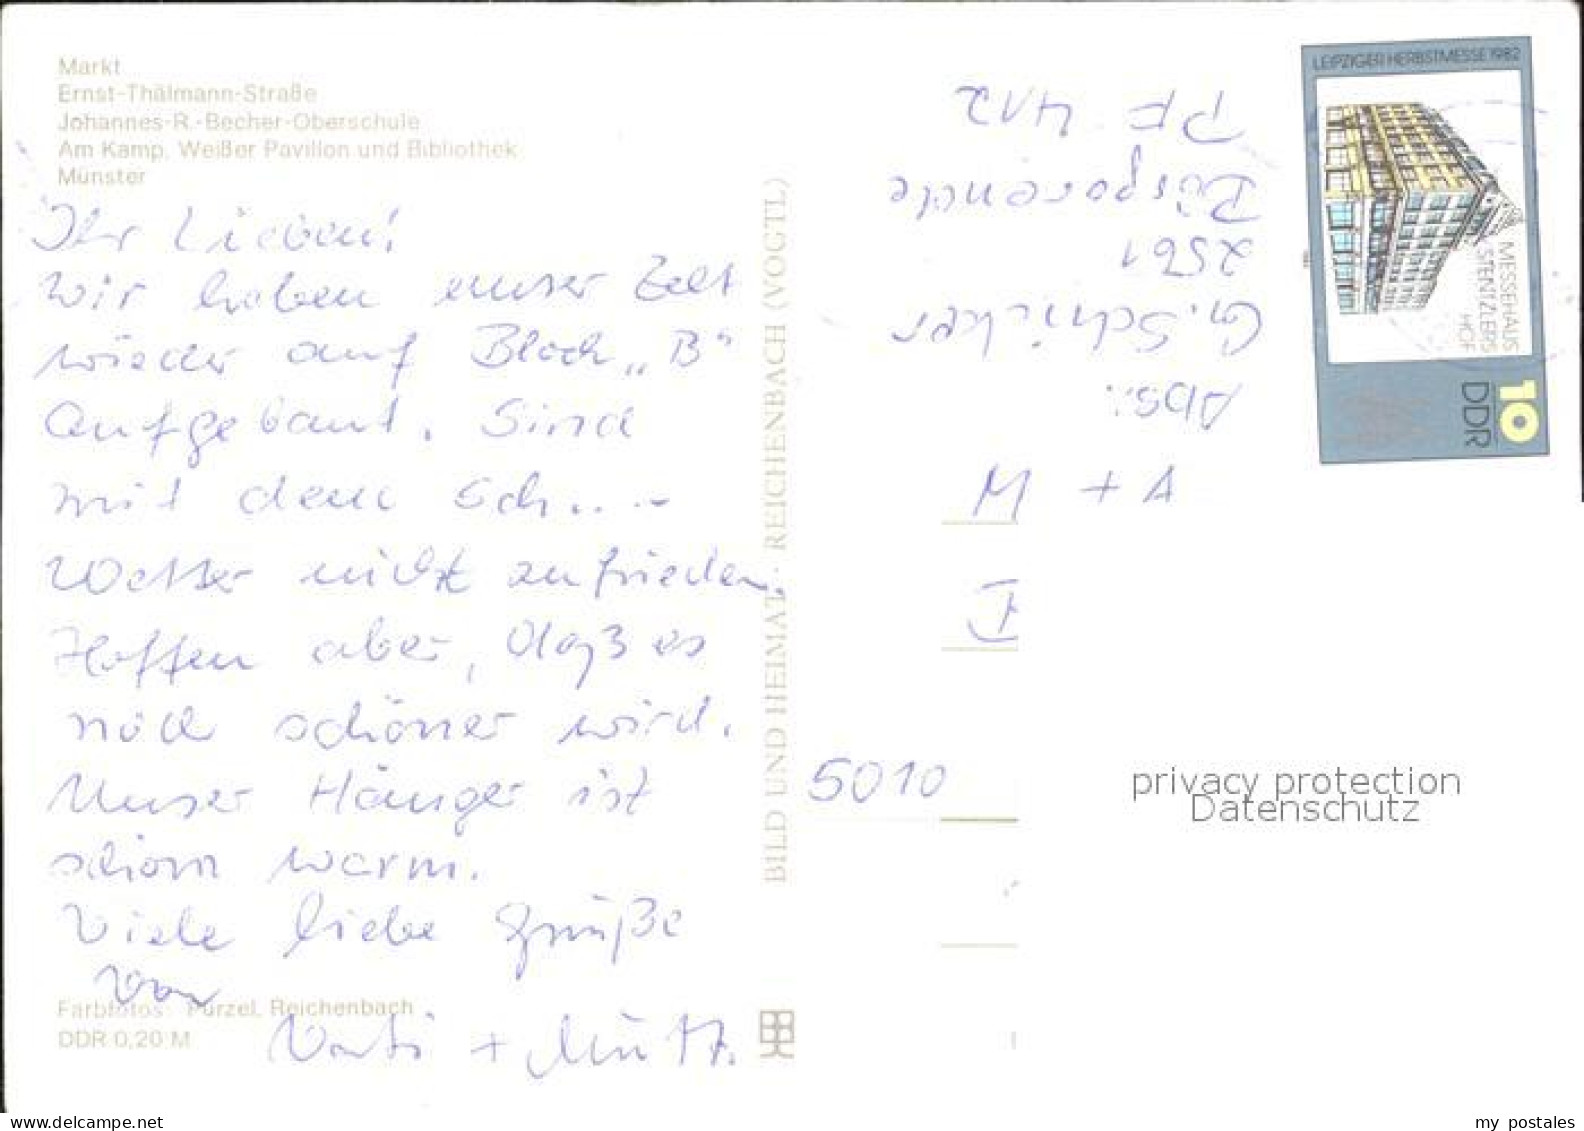 Markt
Ernst-Thälmann-Straße
Johannes-R.-Becher-Oberschule
Am Kamp, Weißer Pavillon und Bibliothek
Münster
Ihr Lieben!
Wir haben unser Zelt
wieder auf Block „B“
aufgebaut. Sind
mit dem Sch....
Wetter nicht zufrieden.
Hoffen aber, daß es
noch schöner wird.
Unser Hänger ist
schon warm.
Viele liebe Grüße
von
Vati + Mutti.
Farbfotos: Pürzel, Reichenbach
DDR 0,20 M
BILD UND HEIMAT REICHENBACH (VOGTL)
Abs.:
G. Schicker
2561
PF 412
M + A
5010
LEIPZIGER HERBSTMESSE 1982
MESSEHAUS
STENTZLERS
HOF
10
DDR
privacy protection
Datenschutz
my postales